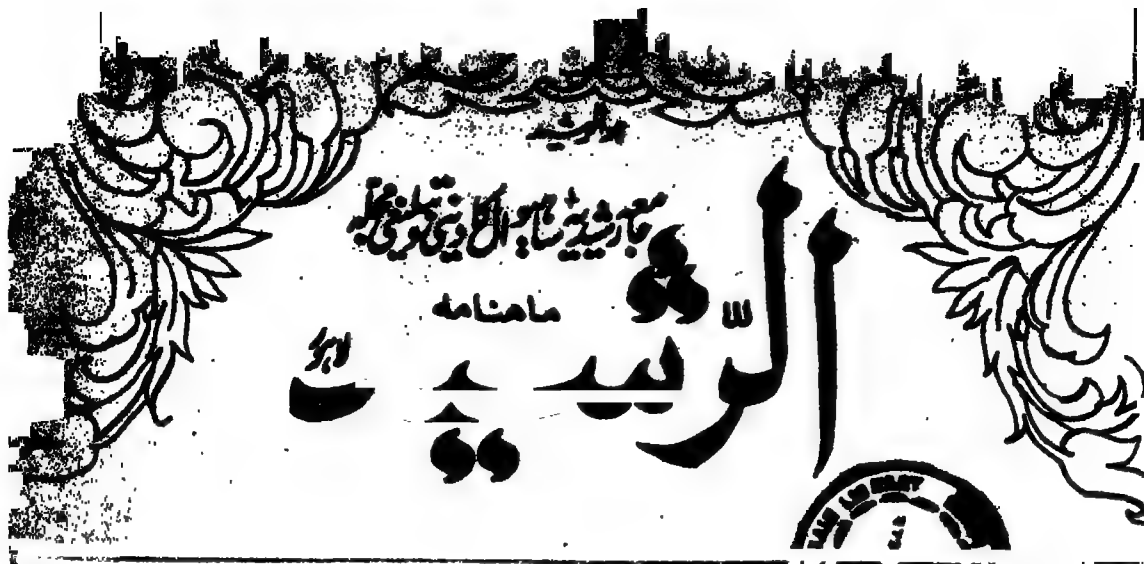 جامعہ رشیدیہ ساہیوال کا دینی تبلیغی مجلہ
ماهنامه
الرشید
لاہور